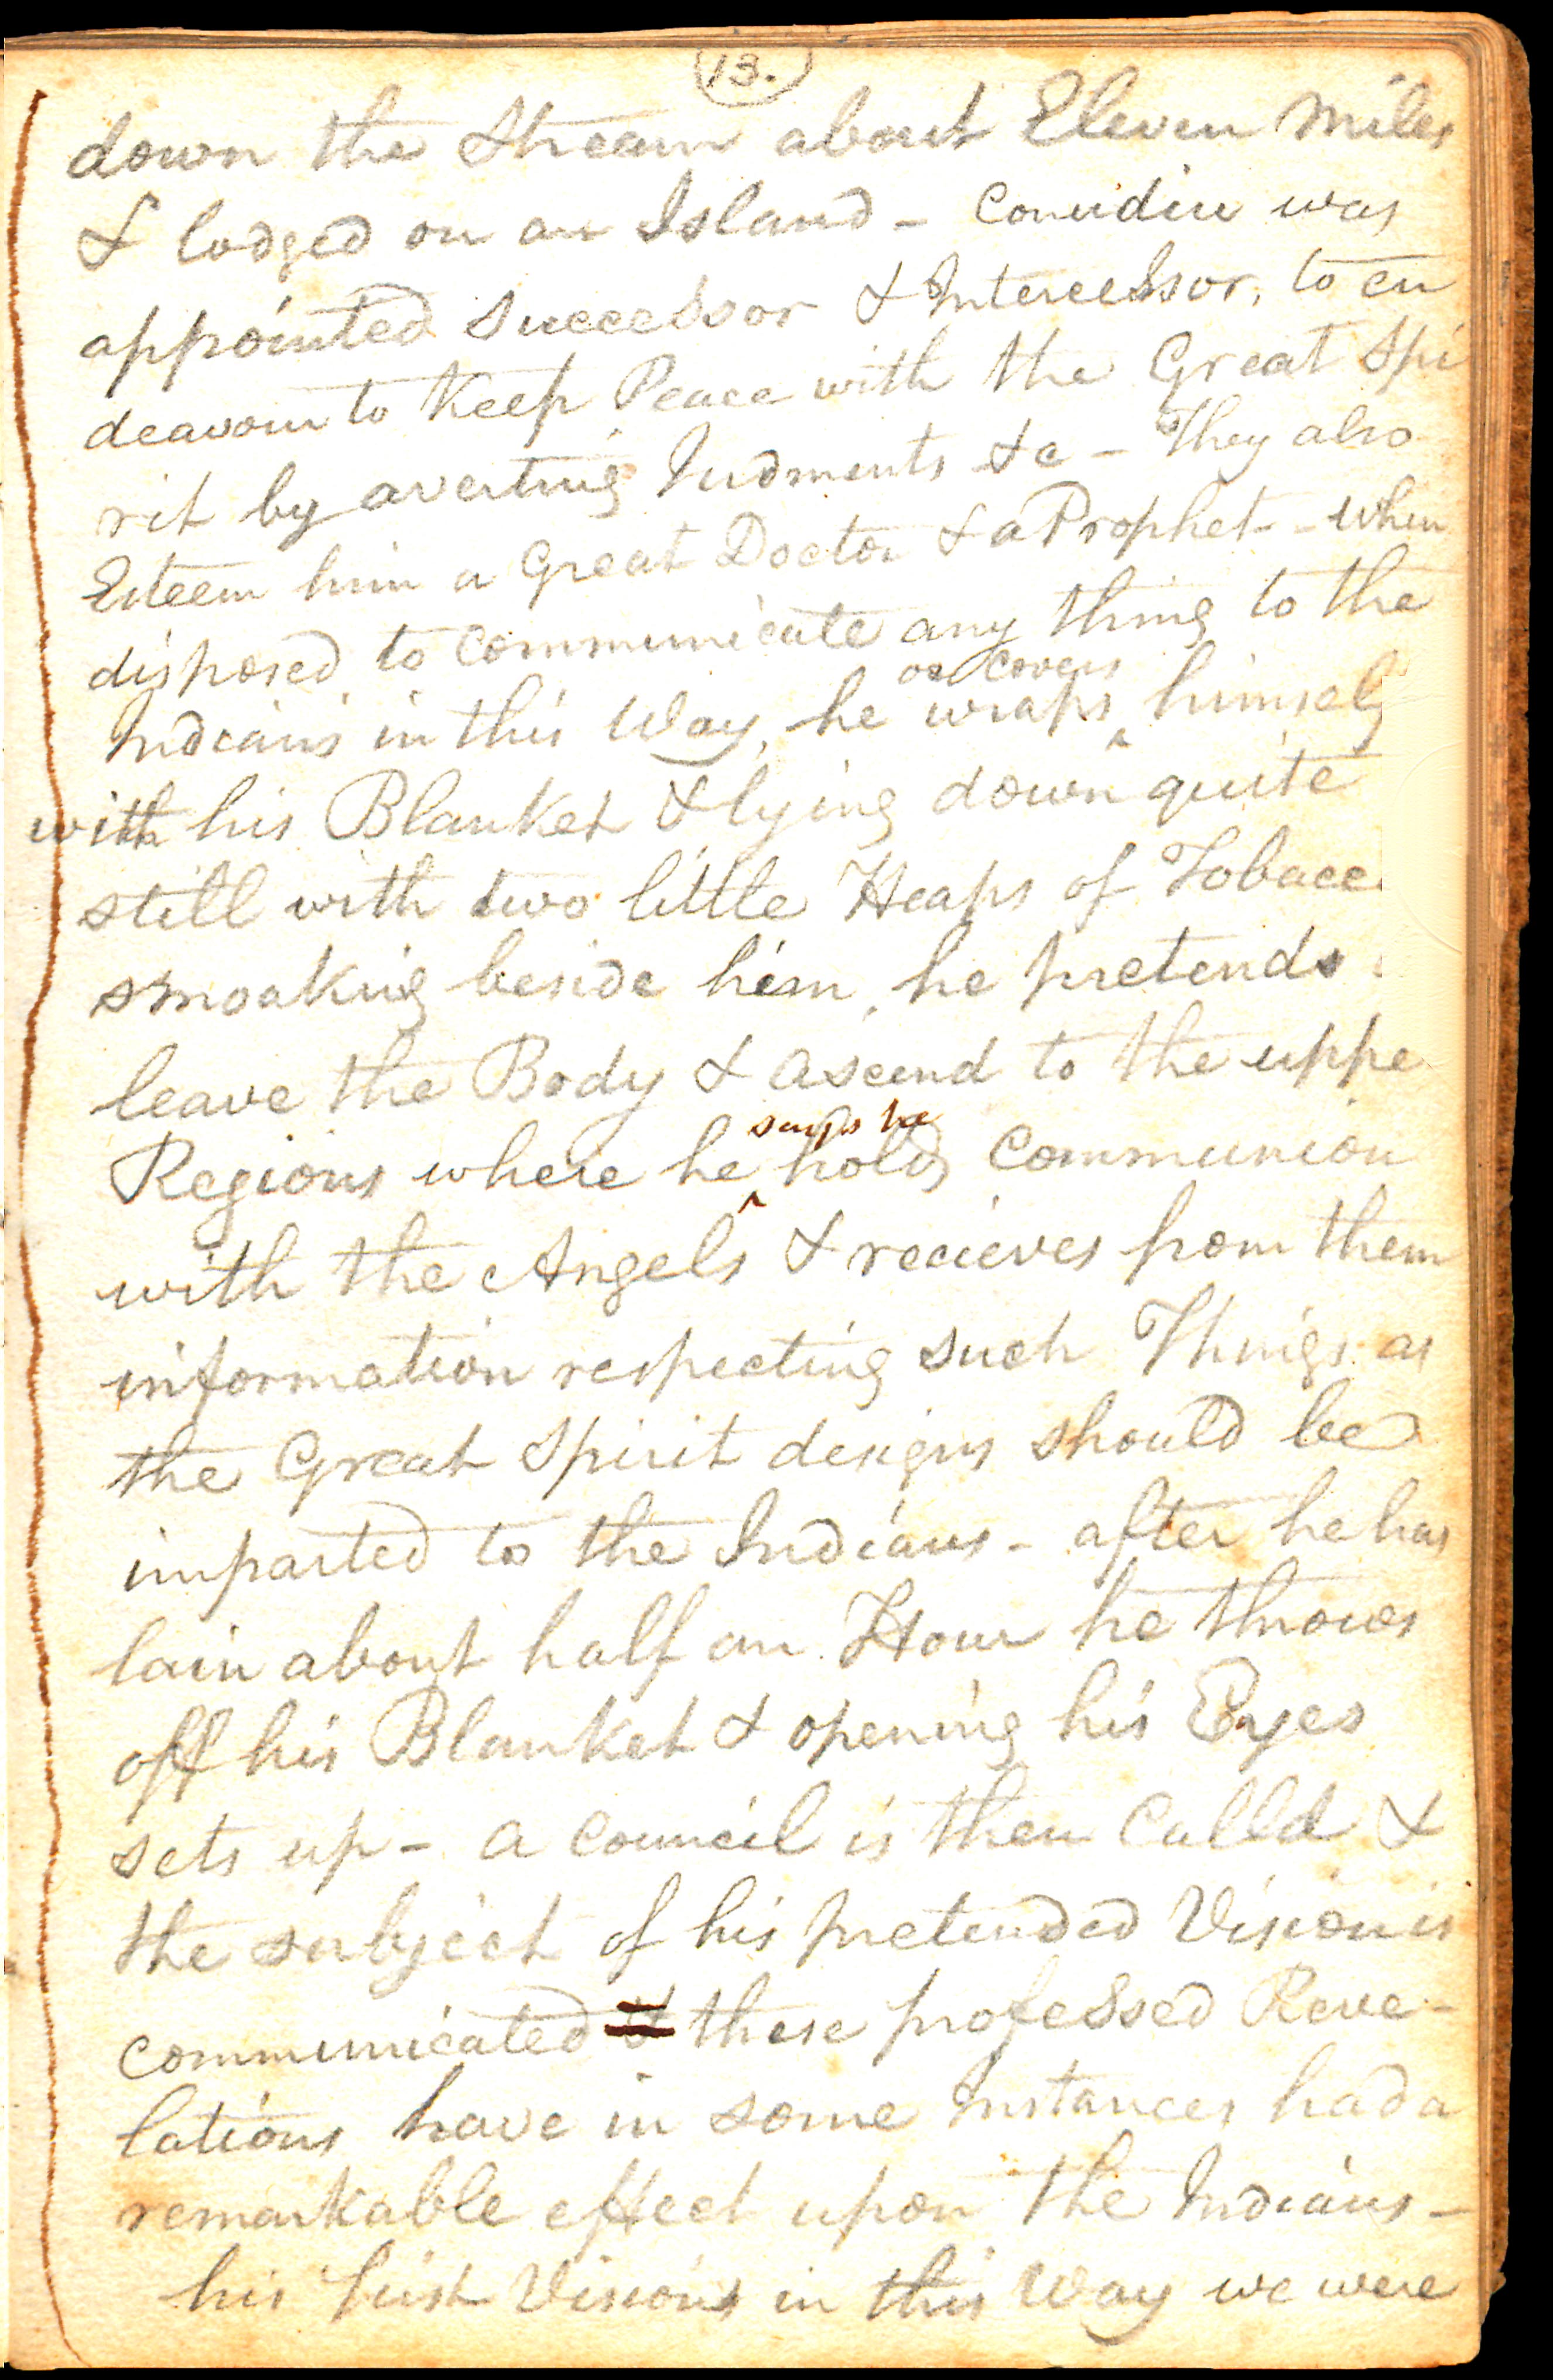 13.
down the Stream about Eleven Miles
& lodged on an Island - Conudiu was
appointed Successor & Intercessor, to en
deavour to Keep Peace with the Great Spi
rit by averting Judments &c - They also
Esteem him a Great Doctor & a Prophet - when
disposed to Communicate any thing to the
or covers
Indians in this Way, he wraps ^ himself
with his Blanket & lying down quite
still with two little Heaps of Tobacc
smoaking beside him, he pretends
leave the Body & ascend to the uppe
says he
Regions where he ^ holds Communion
with the Angels & recieves from them
information respecting such Things as
the Great Spirit designs should be
imparted to the Indians - after he has
lain about half an Hour he throws
off his Blanket & opening his Eyes
sets up - a Council is then Calld &
the subject of his pretended Vision is
communicated & these professed Reve-
lations have in some Instances had a
remarkable effect upon the Indians -
his first Visions in this Way we were